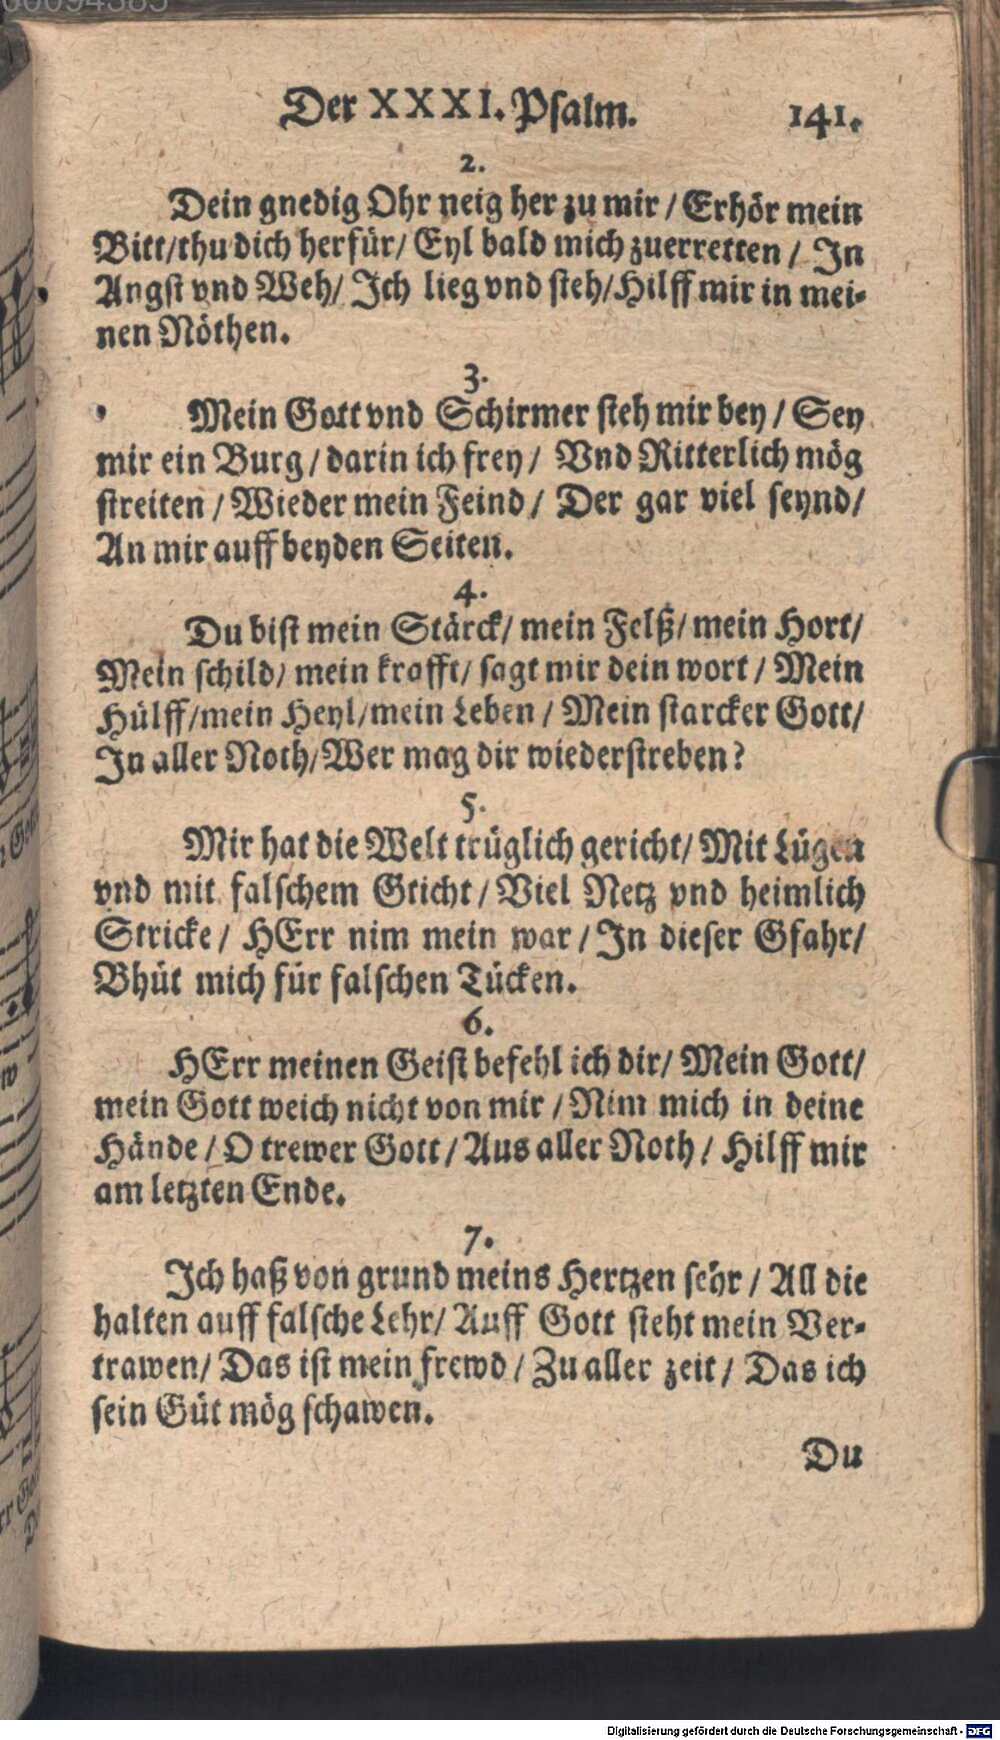 00094385
Der XXXI. Psalm. 141.
2.
Dein gnedig Ohr neig her zu mir / Erhör mein
Bitt/thu dich herfür/ Eyl bald mich zuerretten / In
Angst vnd Weh/ Ich lieg vnd steh/Hilff mir in mei-
nen Nöthen.
3.
Mein Gott vnd Schirmer steh mir bey / Sey
mir ein Burg / darin ich frey / Vnd Ritterlich mög
streiten / Wieder mein Feind / Der gar viel seynd/
An mir auff beyden Seiten.
4.
Du bist mein Stärck/ mein Felß/ mein Hort/
Mein schild/ mein krafft/ sagt mir dein wort / Mein
Hülff/mein Heyl/mein Leben / Mein starcker Gott/
In aller Noth/Wer mag dir wiederstreben?
5.
Mir hat die Welt trüglich gericht/ Mit Lügen
vnd mit falschem Gticht / Viel Netz vnd heimlich
Stricke / HErr nim mein war / In dieser Gfahr/
Bhüt mich für falschen Tücken.
6.
HErr meinen Geist befehl ich dir/ Mein Gott/
mein Gott weich nicht von mir / Nim mich in deine
Hände / O trewer Gott / Aus aller Noth / Hilff mir
am letzten Ende.
7.
Ich haß von grund meins Hertzen sehr / All die
halten auff falsche Lehr/ Auff Gott steht mein Ver-
trawen/ Das ist mein frewd / Zu aller zeit / Das ich
sein Güt mög schawen.
Du
Digitalisierung gefördert durch die Deutsche Forschungsgemeinschaft - DFG